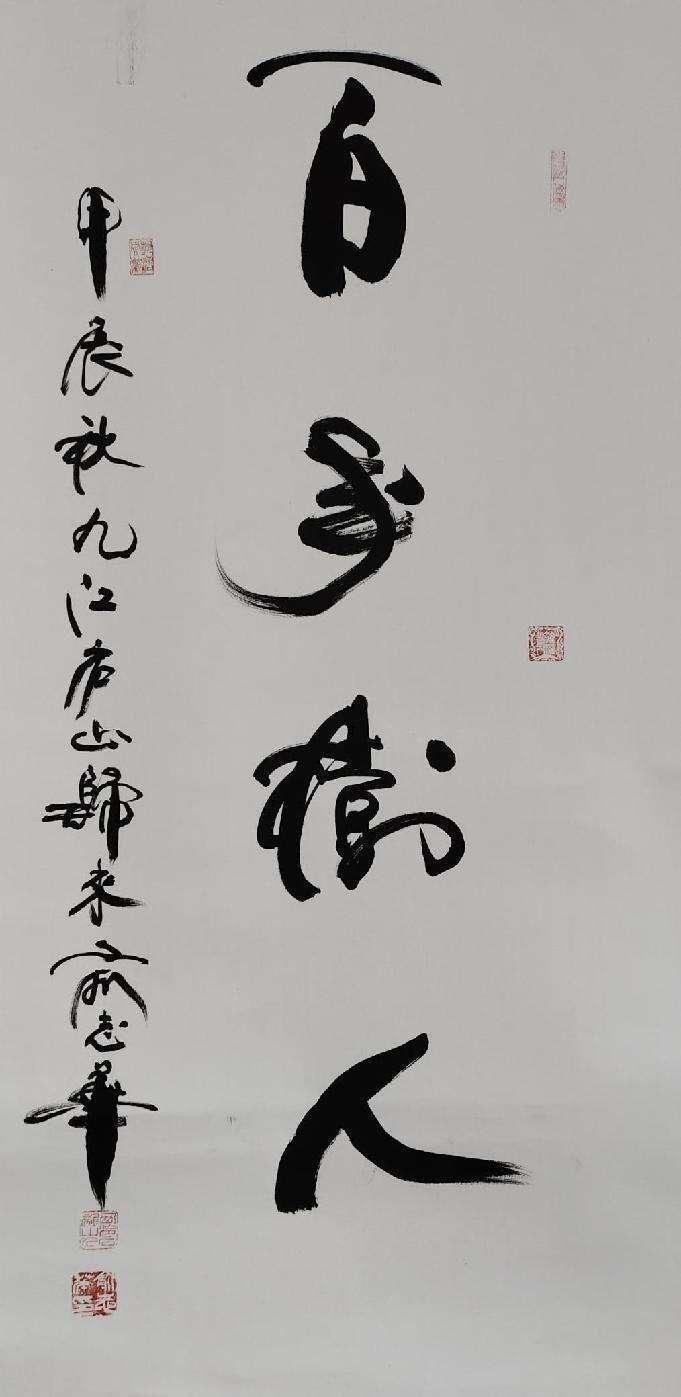 百年樹人
甲辰秋九江庐山歸来俞志華